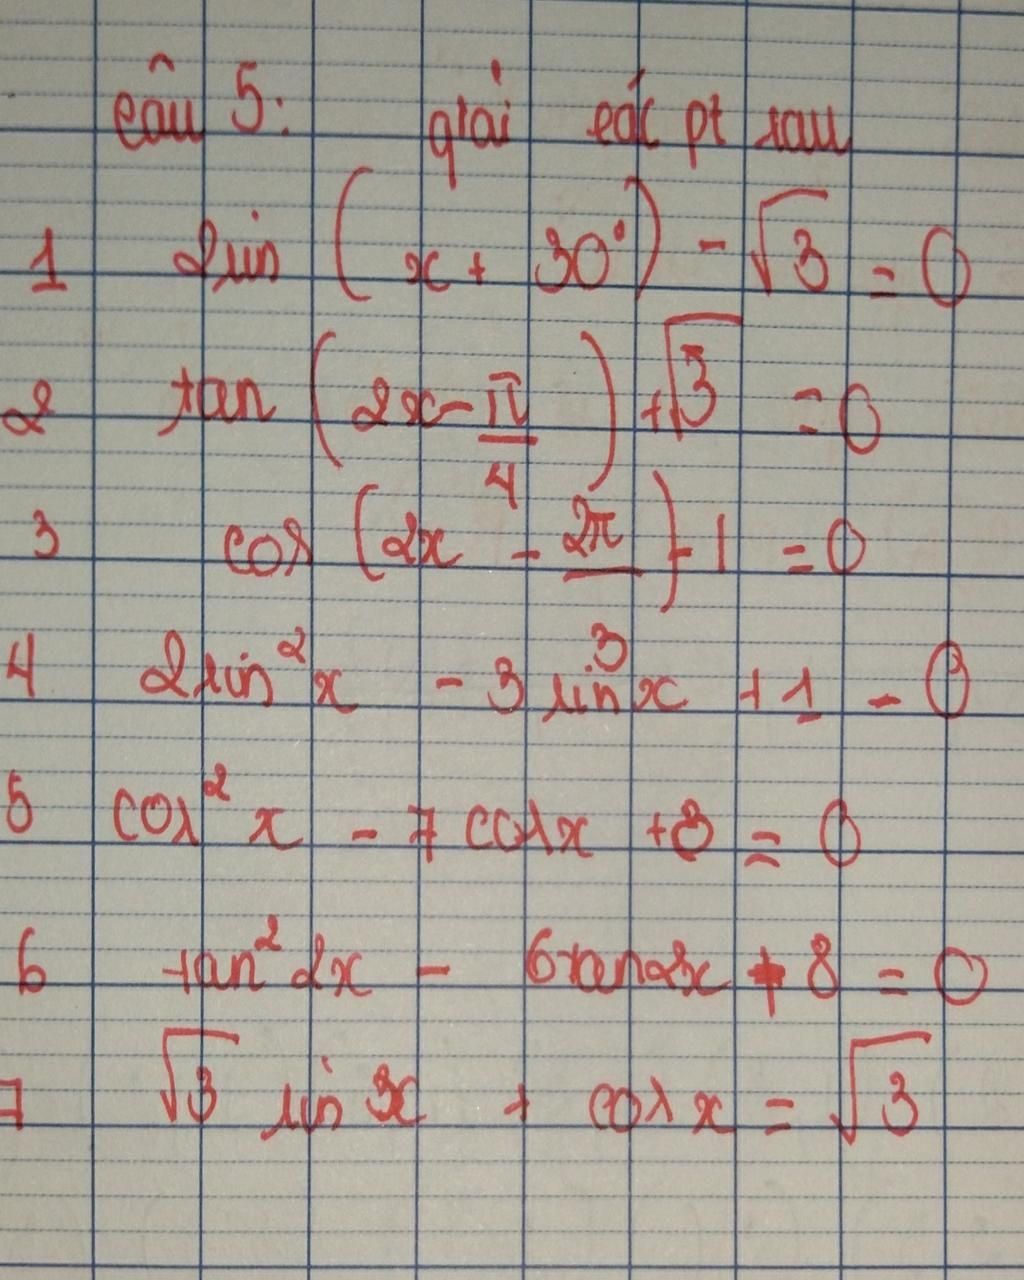 câu 5: giải các pt sau
1 2sin (x + 30°) - √3 = 0
2 tan (2x - π/4) + √3 = 0
3 cos (2x - 2π/3) - 1 = 0
4 2sin² x - 3 sin x + 1 = 0
5 cos² x - 7 cos x + 8 = 0
6 tan² 2x - 6tan2x + 8 = 0
7 √3 sin x + cos x = √3